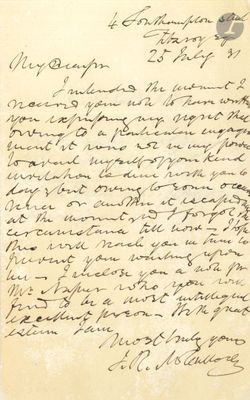 4 Southampton
Fitzroy Sq
25 July 31
My Dear
I intended the moment I
received your note to have
you expressing my regret that
owing to a particular engage
ment it was not in my power
to avail myself of your kind
invitation to dine with you to
day but owing to some
or another it escaped me
at the moment and I forgot the
circumstance till now — I hope
this will reach you in time to
prevent your waiting upon
me — I inclose you a note for
Mr Napier who you will
find to be a most intelligent
excellent person — With great
esteem I am
Most truly yours
J. R. McCulloch